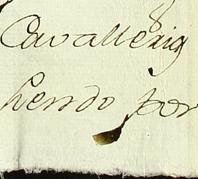 Cavallerig
hendo por